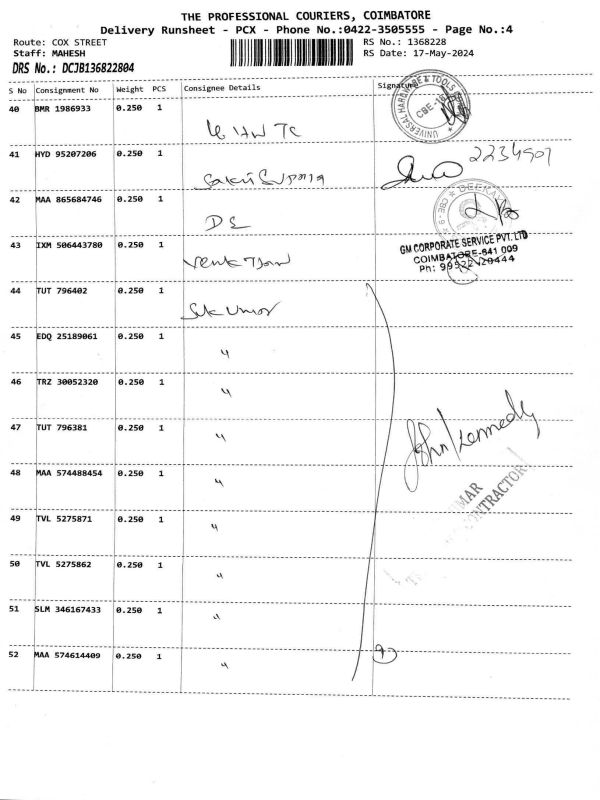 THE PROFESSIONAL COURIERS, COIMBATORE
Delivery Runsheet - PCX - Phone No.:0422-3505555 - Page No.:4
Route: COX STREET RS No.: 1368228
Staff: MAHESH RS Date: 17-May-2024
DRS No.: DCJB136822804
S No Consignment No Weight PCS Consignee Details Signature
40 BMR 1986933 0.250 1
UNIVERSAL HARDWARE & TOOLS
CBE-18
41 HYD 95207206 0.250 1
2234907
42 MAA 865684746 0.250 1
DS
CBE - 9
43 IXM 506443780 0.250 1
GM CORPORATE SERVICE PVT. LTD
COIMBATORE-641 009
44 TUT 796402 0.250 1
45 EDQ 25189061 0.250 1 "
46 TRZ 30052320 0.250 1 "
47 TUT 796381 0.250 1 "
John Kennedy
48 MAA 574488454 0.250 1 "
49 TVL 5275871 0.250 1 "
50 TVL 5275862 0.250 1 "
51 SLM 346167433 0.250 1 "
52 MAA 574614409 0.250 1 "